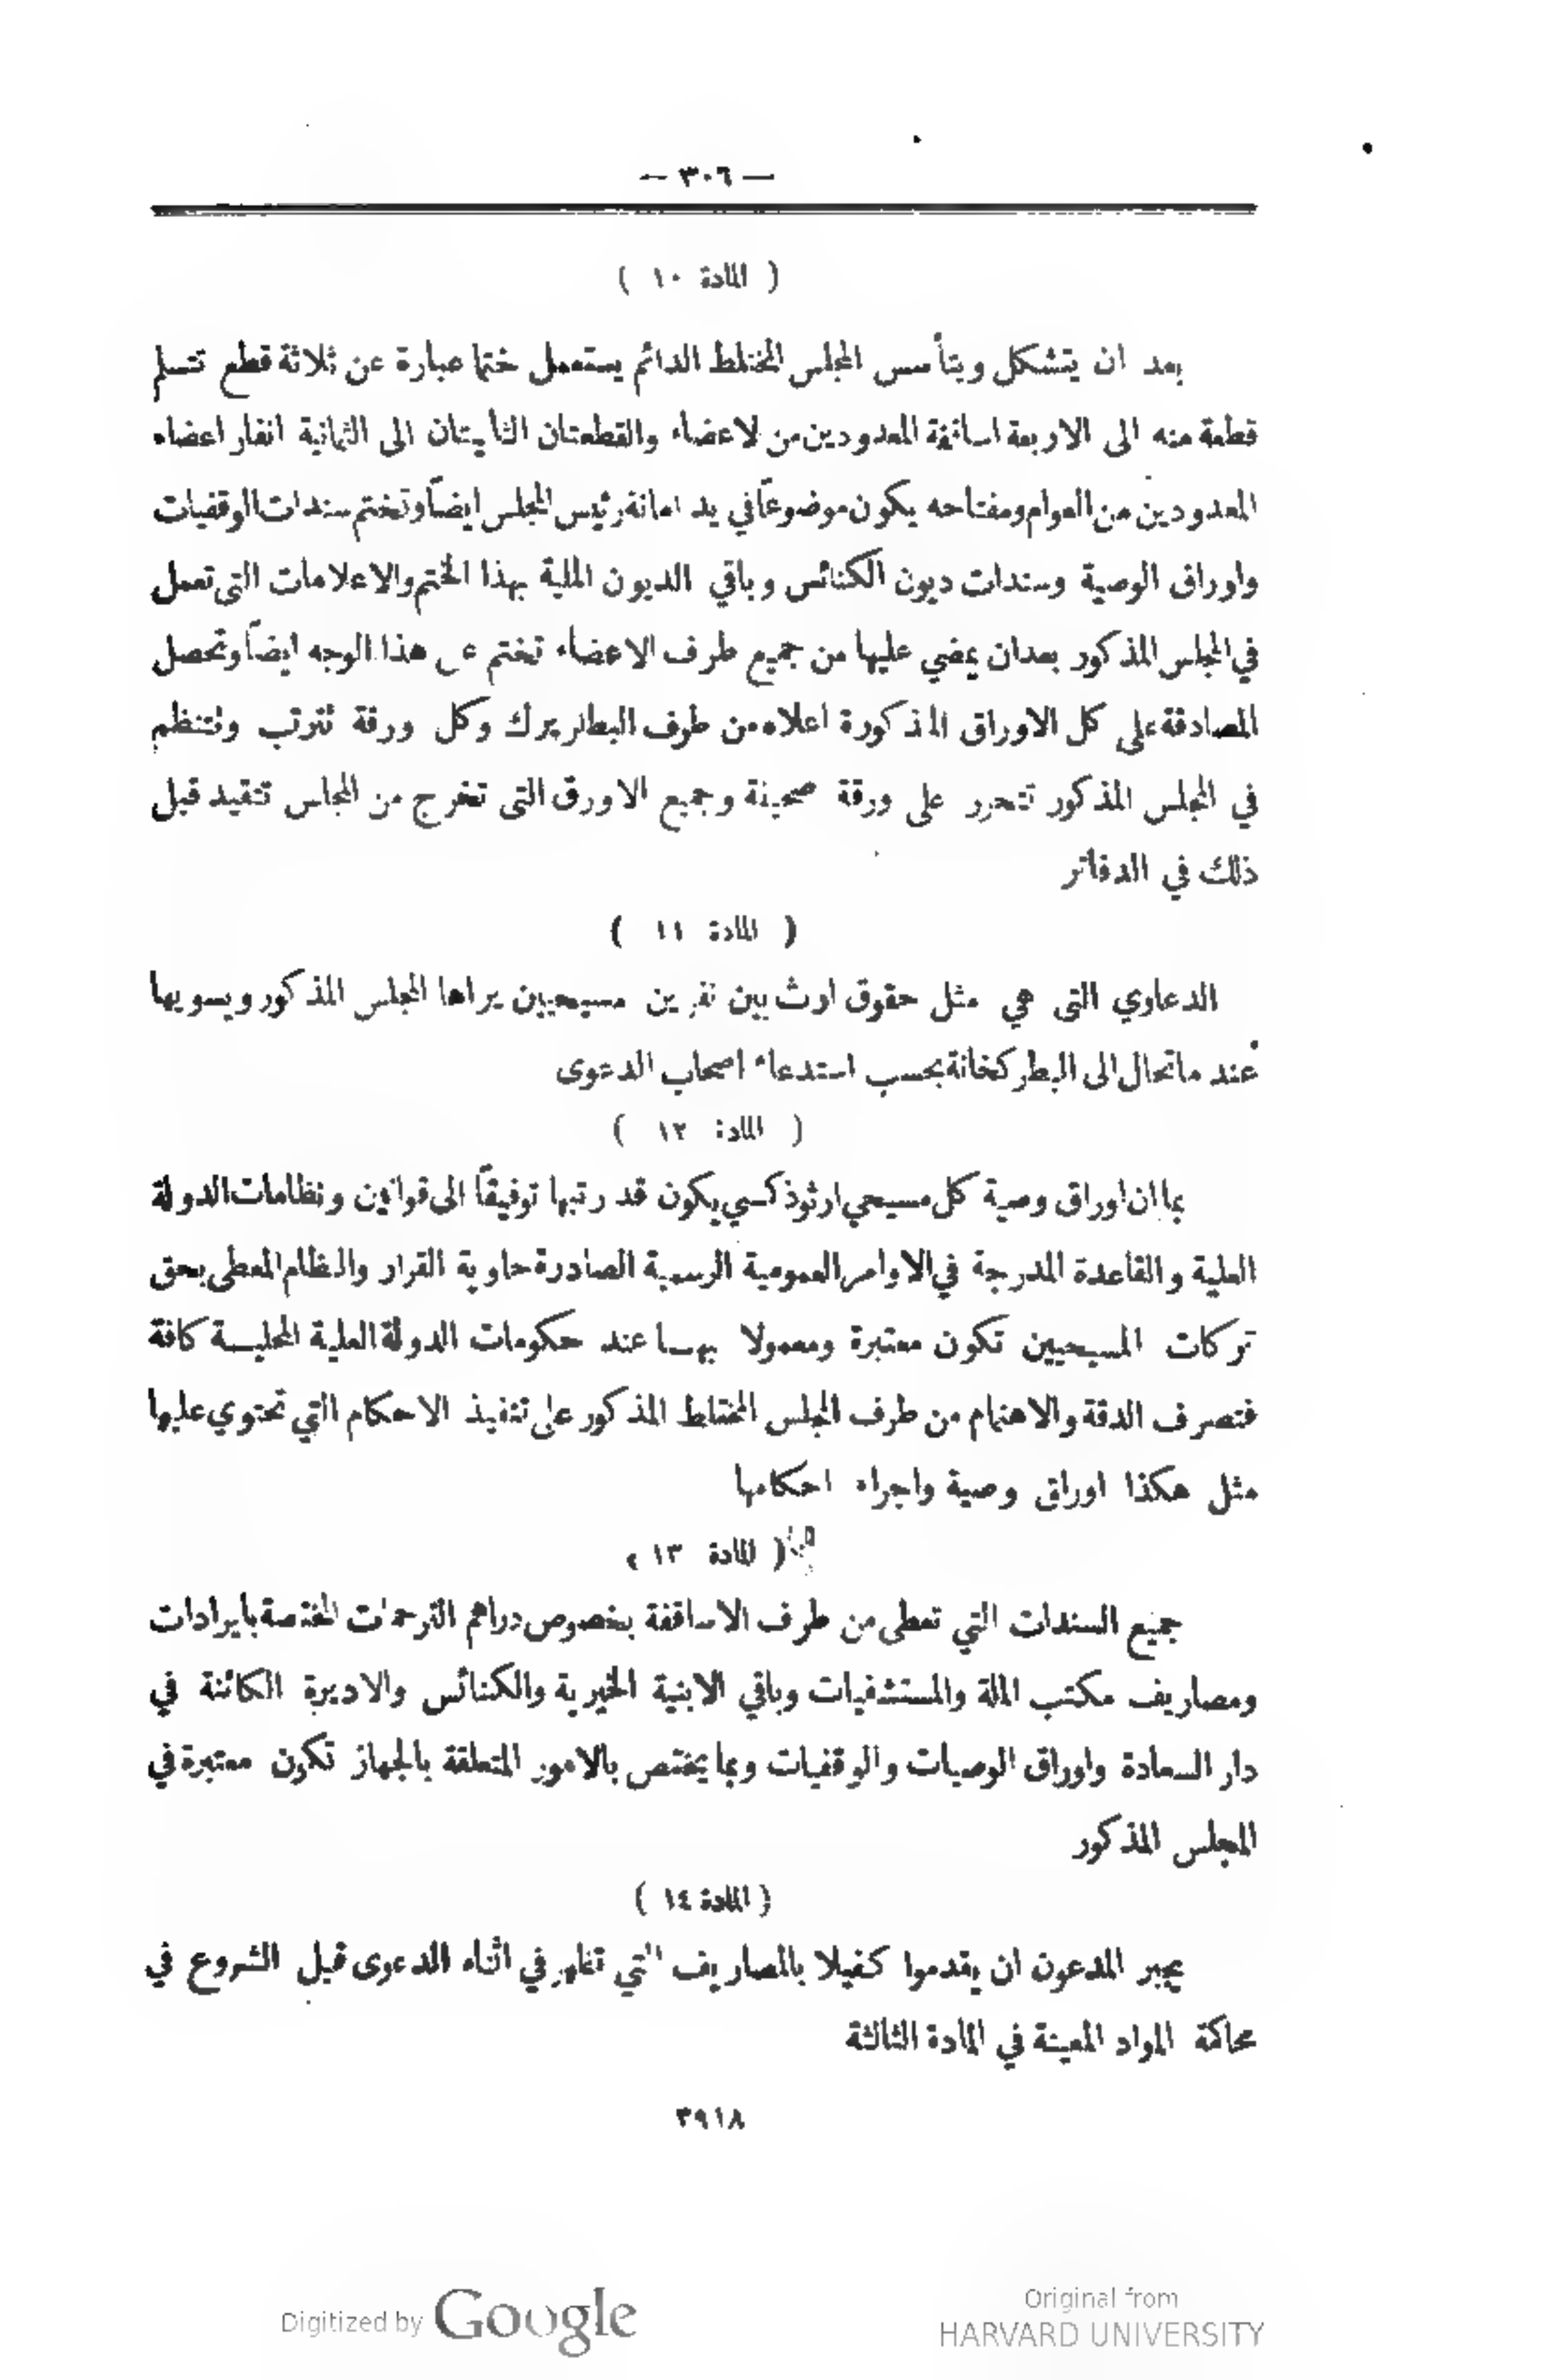 — ٣٠٦ —
( المادة ١٠ )
بعد ان يتشكل ويتأسس المجلس المختلط الدائم يستعمل ختما عبارة عن ثلاثة قطع تتسلم
قطعة منه الى الاربعة اساقفة المعدودين من لاعضاء والقطعتان الثانيتان الى الثمانية انفار اعضاء
المعدودين من العوام ومفتاحه يكون موضوعاً في يد امانة رئيس المجلس ايضاً وتختم سندات الوقفيات
واوراق الوصية وسندات ديون الكنائس وباقي الديون الملية بهذا الختم والاعلامات التى تعمل
في المجلس المذكور بعدان يمضي عليها من جميع طرف الاعضاء تختم على هذا الوجه ايضاً وتحصل
المصادقة على كل الاوراق المذكورة اعلاه من طرف البطريرك وكل ورقة تترتب وتنتظم
في المجلس المذكور تتحرر على ورقة صحيفة وجميع الاورق التى تخرج من المجلس تتقيد قبل
ذلك في الدفاتر
( المادة ١١ )
الدعاوي التى هي مثل حقوق ارث بين نفرين مسيحيين يراها المجلس المذكور ويسويها
عند ماتحال الى البطركخانة بحسب استدعاء اصحاب الدعوى
( المادة ١٢ )
بما ان اوراق وصية كل مسيحي ارثوذكسي يكون قد رتبها توفيقاً الى قوانين ونظامات الدولة
العلية والقاعدة المدرجة في الاوامر العمومية الرسمية الصادرة حاوية القرار والنظام المعطى بحق
تركات المسيحيين تكون معتبرة ومعمولا بهـا عند حكومات الدولة العلية المحليـة كافة
فتصرف الدقة والاهتمام من طرف المجلس المختلط المذكور على تنفيذ الاحكام التي تحتوي عليها
مثل هكذا اوراق وصية واجراء احكامها
( المادة ١٣ )
جميع السندات التي تعطى من طرف الاساقفة بخصوص دراهم الترحمات المختصة بايرادات
ومصاريف مكتب الملة والمستشفيات وباقي الابنية الخيرية والكنائس والاديرة الكائنة في
دار السعادة واوراق الوصيات والوقفيات وبما يختص بالامور المتعلقة بالجهاز تكون معتبرة في
المجلس المذكور
( المادة ١٤ )
يجبر المدعون ان يقدموا كفيلا بالمصاريف التي تظهر في اثناء الدعوى قبل الشروع في
محاكمة المواد المعينة في المادة الثالثة
٣٩١٨
Digitized by Google
Original from
HARVARD UNIVERSITY